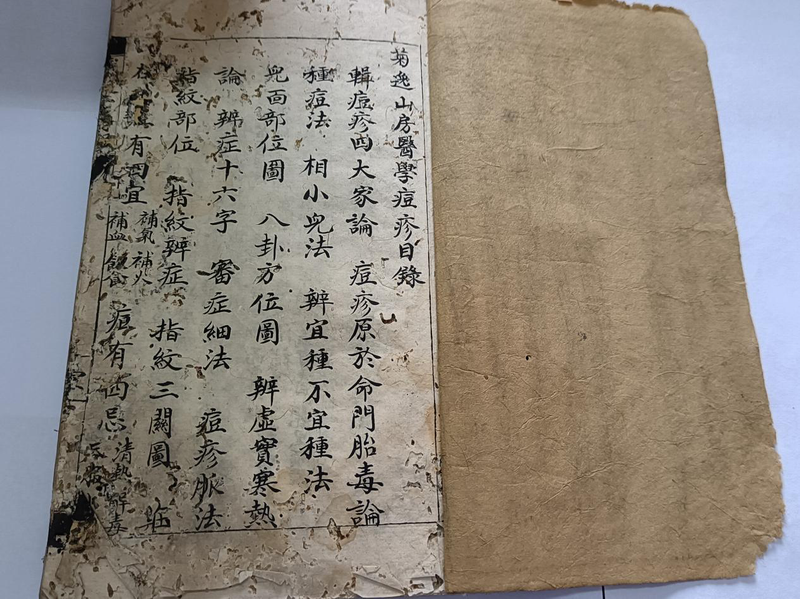 菊逸山房醫學痘疹目錄
輯痘疹四大家論 痘疹原於命門胎毒論
種痘法 相小兒法 辨宜種不宜種法
兒面部位圖 八卦方位圖 辨虛實寒熱
論 辨症十六字 審症細法 痘疹脈法
指紋部位 指紋辨症 指紋三關圖 痘
有四宜 補氣 補火 補血 痘有四忌 清熱 解毒